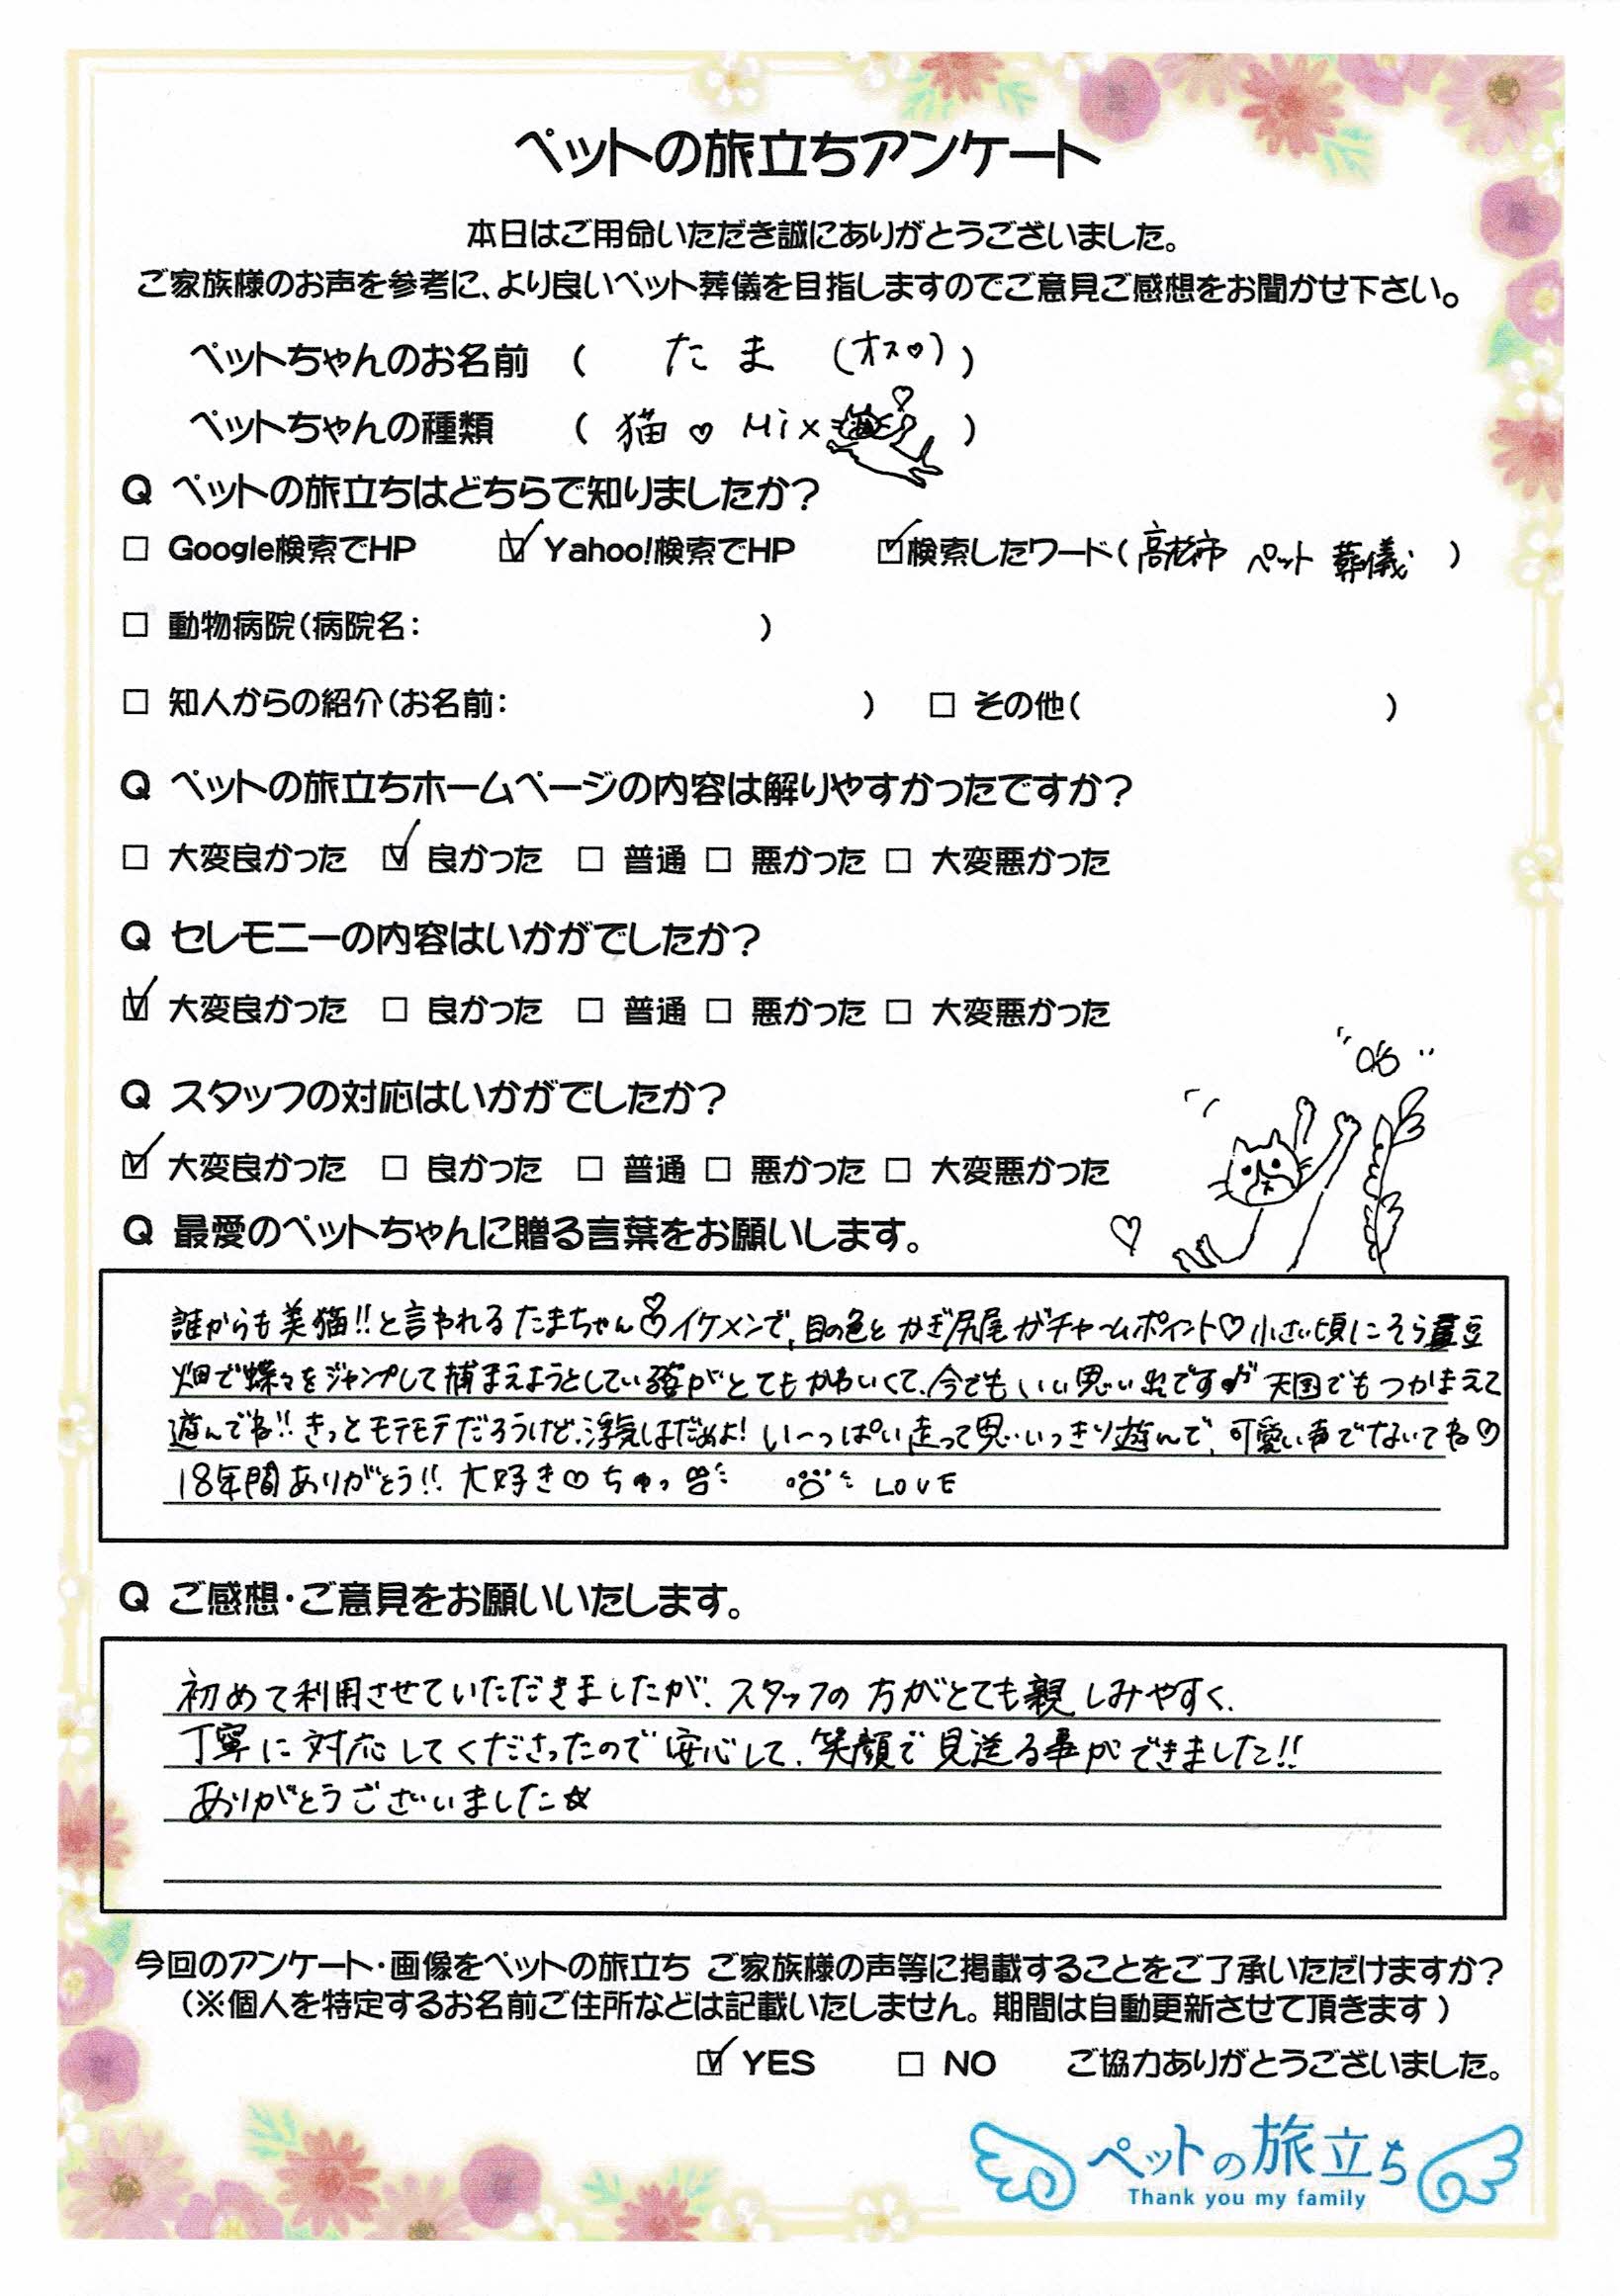 ペットの旅立ちアンケート
本日はご用命いただき誠にありがとうございました。
ご家族様のお声を参考に、より良いペット葬儀を目指しますのでご意見ご感想をお聞かせ下さい。
ペットちゃんのお名前 ( たま (オス♡) )
ペットちゃんの種類 ( 猫 ♡ Mix )
Q ペットの旅立ちはどちらで知りましたか?
□ Google検索でHP ☑ Yahoo!検索でHP ☑ 検索したワード( 高松市 ペット 葬儀 )
□ 動物病院(病院名: )
□ 知人からの紹介(お名前: ) □ その他( )
Q ペットの旅立ちホームページの内容は解りやすかったですか?
□ 大変良かった ☑ 良かった □ 普通 □ 悪かった □ 大変悪かった
Q セレモニーの内容はいかがでしたか?
☑ 大変良かった □ 良かった □ 普通 □ 悪かった □ 大変悪かった
Q スタッフの対応はいかがでしたか?
☑ 大変良かった □ 良かった □ 普通 □ 悪かった □ 大変悪かった
Q 最愛のペットちゃんに贈る言葉をお願いします。
誰からも美猫!!と言われるたまちゃん♡イケメンで、目の色とかぎ尻尾がチャームポイント♡小さい頃にそら豆
畑で蝶々をジャンプして捕まえようとしてい姿がとてもかわいくて、今でもいい思い出です♪天国でもつかまえて
遊んでね!!きっとモテモテだろうけど、浮気はだめよ!いーっぱい走って思いっきり遊んで、可愛い声でないてね♡
18年間ありがとう!!大好き♡ちゅっ LOVE
Q ご感想・ご意見をお願いいたします。
初めて利用させていただきましたが、スタッフの方がとても親しみやすく、
丁寧に対応してくださったので安心して、笑顔で見送る事ができました!!
ありがとうございました☆
今回のアンケート・画像をペットの旅立ち ご家族様の声等に掲載することをご了承いただけますか?
(※個人を特定するお名前ご住所などは記載いたしません。期間は自動更新させて頂きます)
☑ YES □ NO ご協力ありがとうございました。
ペットの旅立ち
Thank you my family